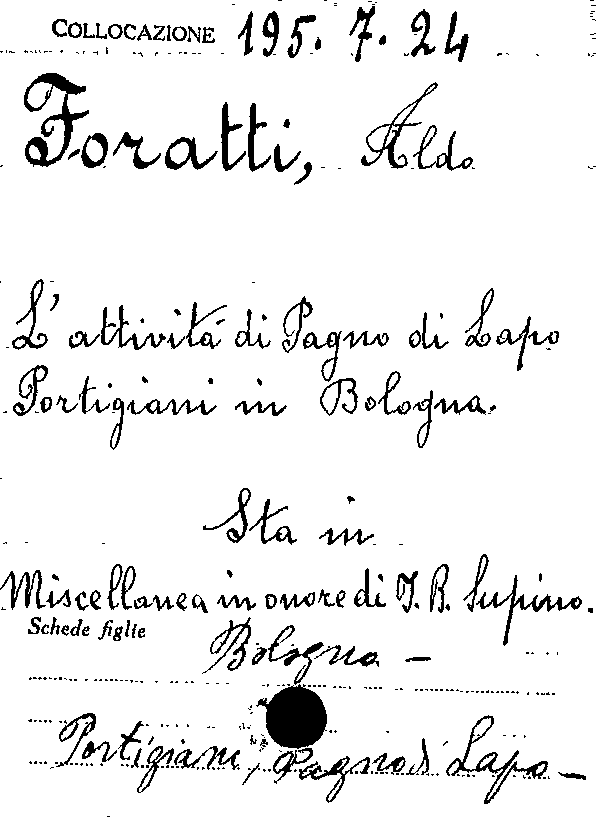 COLLOCAZIONE 195.7.24
Foratti, Aldo
L'attività di Pagno di Lapo
Portigiani in Bologna.
Sta in
Miscellanea in onore di I. B. Supino.
Schede figlie
Bologna -
Portigiani, Pagno di Lapo -